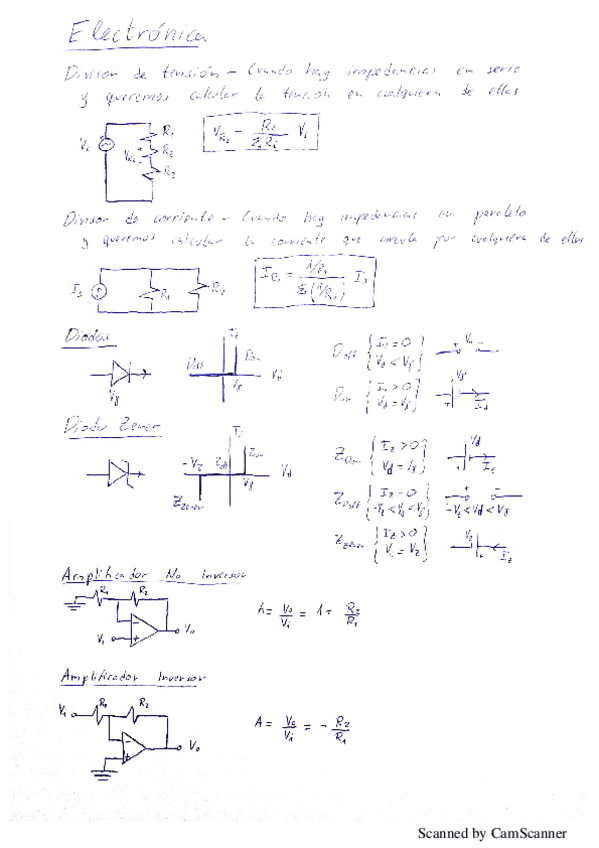 Electrónica
Divisor de tensión - Cuando hay impedancias en serie
y queremos calcular la tensión en cualquiera de ellas
R1
R2
R3
V_R2 = R2 / Σ Ri Vi
Divisor de corriente - Cuando hay impedancias en paralelo
y queremos calcular la corriente que circula por cualquiera de ellas
Is R1 R2
I_R1 = 1/R1 / Σ(1/Ri) Is
Diodos
Vγ
Id
Doff Don
Vγ Vd
Doff { Id = 0
Vd < Vγ
Don { Id > 0
Vd = Vγ
Id
Diodo Zener
Id
-Vz Zoff Zon Vd
Vγ
Zzener
Zon { Iz > 0
Zoff { Iz = 0
-Vz < Vd < Vγ
-Vz < Vd < Vγ
Zzener { Iz > 0
Vz
Iz
Amplificador No Inversor
R1 R2
Vi Vo
Vo / Vi = 1 + R2 / R1
Amplificador Inversor
Vi R1 R2
Vo
A = Vo / Vi = - R2 / R1
Scanned by CamScanner